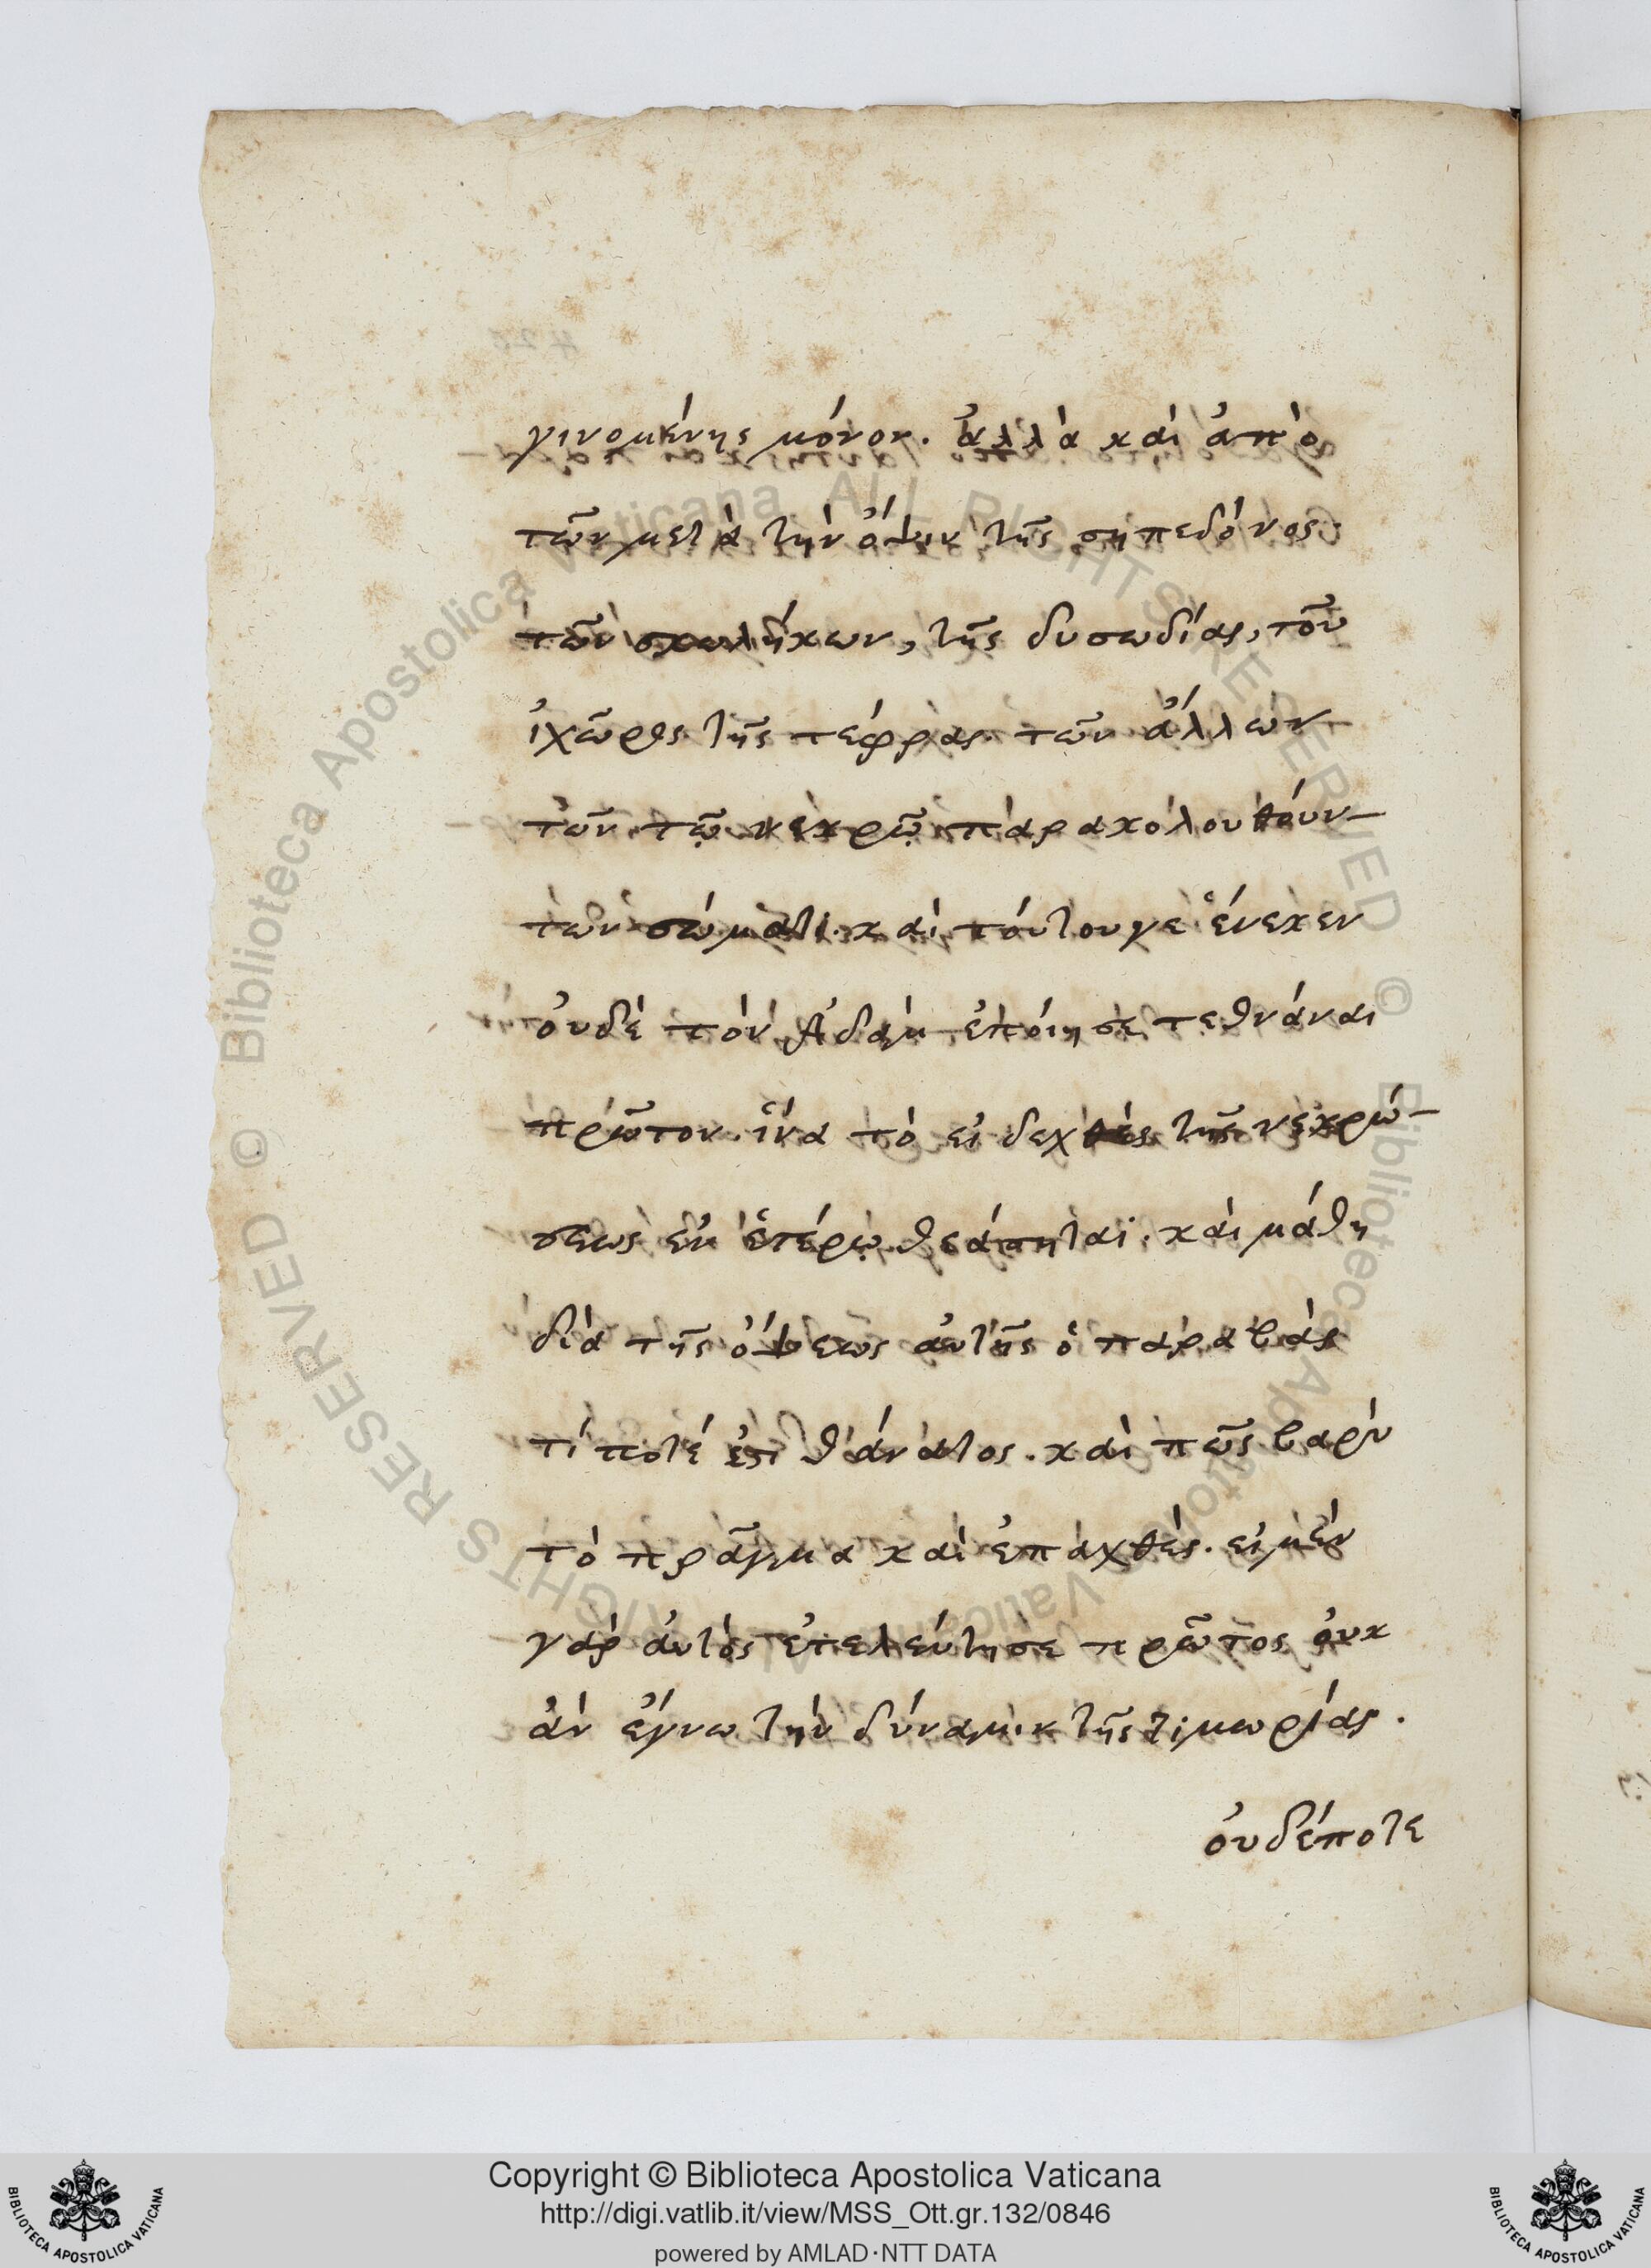 γινομένης μόνον. ἀλλὰ καὶ ἀπὸ
τῶν μετὰ τὴν ὄψιν τῆς σηπεδόνος
τῶν σκωλήκων, τῆς δυσωδίας, τοῦ
ἰχῶρος τῆς τεφρας τῶν ἄλλων
τῶν τῷ νεκρῷ παρακολουθούν-
των σώματι. καὶ τούτου γε ἕνεκεν
οὐδὲ τὸν Ἀδαμ ἐποίησε τεθνάναι
πρῶτον. ἵνα τὸ εἰδεχθὲς τῆς νεκρώ-
σεως ἐν ἑτέρῳ θεάσηται. καὶ μάθη
διὰ τῆς ὄψεως αὐτῆς ὁ παραβὰς
τί ποτέ ἐστι θάνατος. καὶ πῶς βαρὺ
τὸ πρᾶγμα καὶ ἐπαχθές. εἰ μὲν
γὰρ ἀυτὸς ἐτελεύτησε πρῶτος οὐκ
ἀν ἔγνω τὴν δύναμιν τῆς τιμωρίας.
οὐδέποτε
Copyright © Biblioteca Apostolica Vaticana
http://digi.vatlib.it/view/MSS_Ott.gr.132/0846
powered by AMLAD·NTT DATA